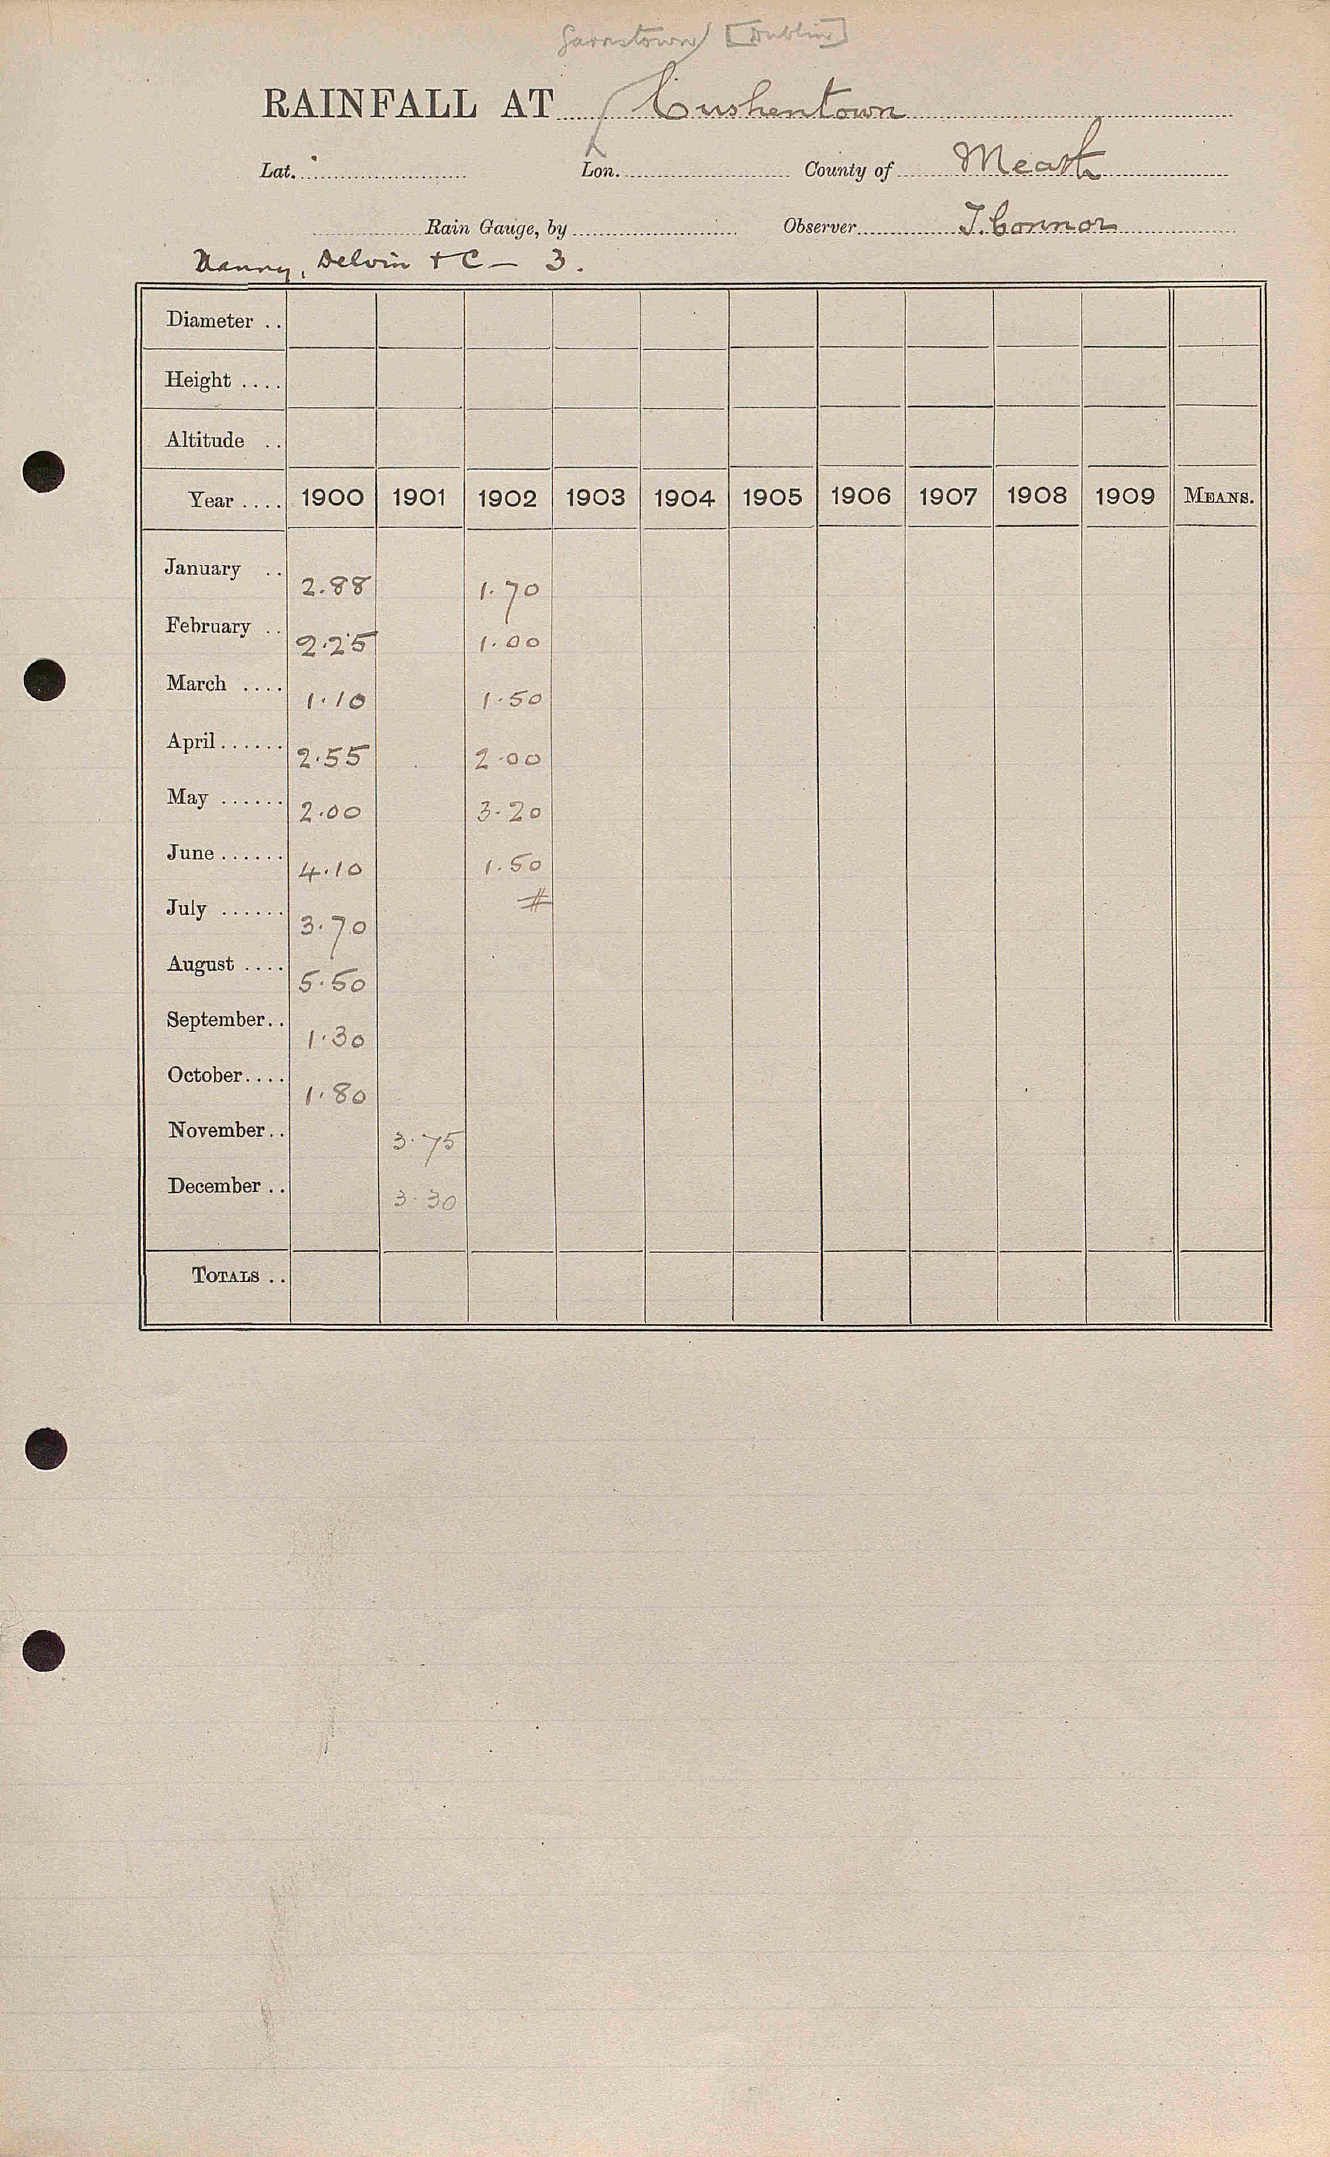 Garristown [Dublin]
RAINFALL AT Cushentown
Lat. Lon. County of Meath
Rain Gauge, by Observer J. Connor
Nanny, Delvin + C — 3.
Diameter ..
Height ....
Altitude ..
Year .... 1900 1901 1902 1903 1904 1905 1906 1907 1908 1909 MEANS.
January .. 2.88 1.70
February .. 2.25 1.00
March .... 1.10 1.50
April ...... 2.55 2.00
May ...... 2.00 3.20
June ...... 4.10 1.50
July ...... 3.70 #
August .... 5.50
September .. 1.30
October .... 1.80
November .. 3.75
December .. 3.30
TOTALS ..